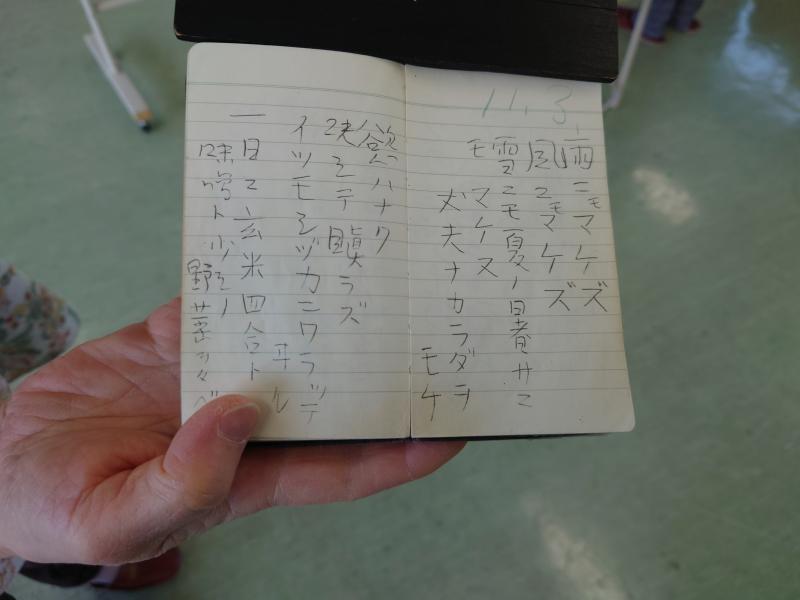 11.3.
雨ニモマケズ
風ニモマケズ
雪ニモ夏ノ暑サニ
モマケヌ
丈夫ナカラダヲ
モチ
慾ハナク
決シテ瞋ラズ
イツモシヅカニワラッテ
ヰル
一日ニ玄米四合ト
味噌ト少シノ
野菜ヲタベ